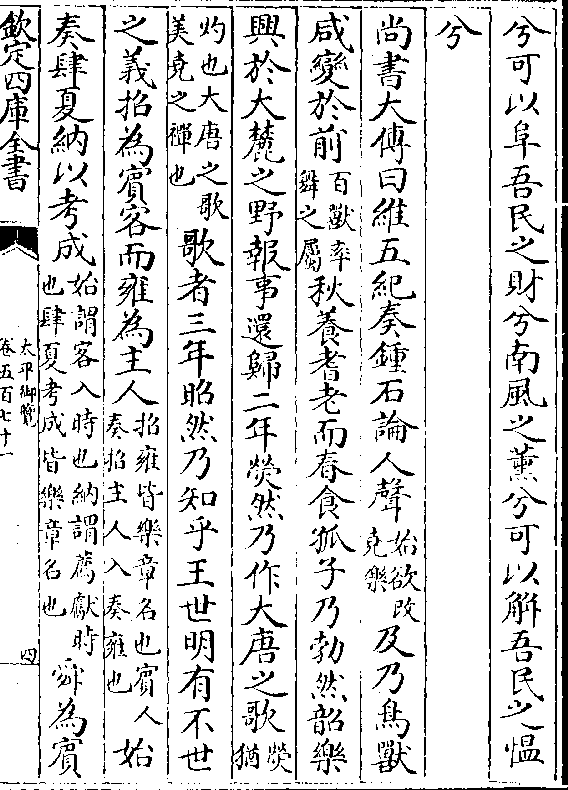 兮可以阜吾民之財兮南風之薰兮可以解吾民之愠
兮
尚書大傳曰維五紀奏鍾石論人聲始欲改堯樂及乃鳥獸
咸變於前百獸率舞之屬秋養耆老而春食孤子乃勃然韶樂
興於大麓之野報事還歸二年熒然乃作大唐之歌熒猶
灼也大唐之歌美堯之禪也歌者三年昭然乃知乎王世明有不世
之義招為賓客而雍為主人招雍皆樂章名也賓人奏招主人入奏雍也始
奏肆夏納以考成始謂客入時也納謂薦獻時也肆夏考成皆樂章名也舜為賓
欽定四庫全書
太平御覽
卷五百七十一
四